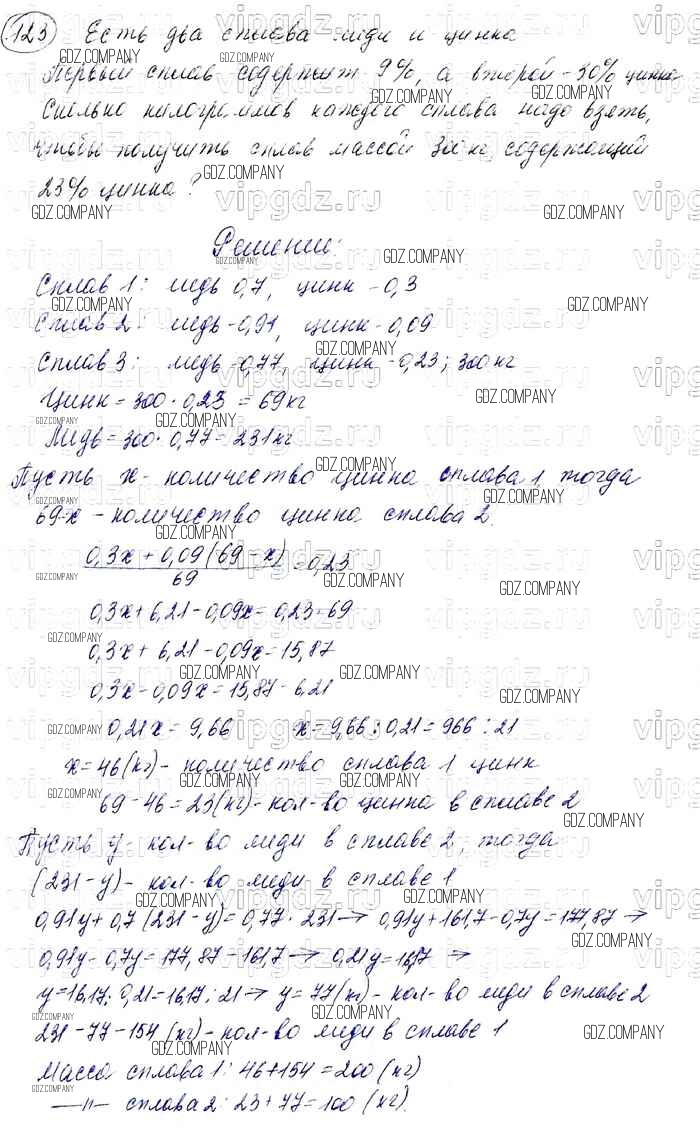 123 Есть два сплава меди и цинка
Первый сплав содержит 9%, а второй - 30% цинка.
Сколько килограммов каждого сплава надо взять,
чтобы получить сплав массой 300 кг, содержащий
23% цинка?
Решение:
Сплав 1: медь 0,7, цинк - 0,3
Сплав 2: медь - 0,91, цинк - 0,09
Сплав 3: медь - 0,77, цинк - 0,23; 300 кг
Цинк = 300 · 0,23 = 69 кг
Медь = 300 · 0,77 = 231 кг
Пусть x - количество цинка сплава 1, тогда
69-x - количество цинка сплава 2.
0,3x + 0,09(69-x) / 69 = 0,23
0,3x + 6,21 - 0,09x = 0,23 · 69
0,3x + 6,21 - 0,09x = 15,87
0,3x - 0,09x = 15,87 - 6,21
0,21x = 9,66 x = 9,66 : 0,21 = 966 : 21
x = 46 (кг) - количество сплава 1 цинк
69 - 46 = 23 (кг) - кол-во цинка в сплаве 2
Пусть y - кол-во меди в сплаве 2, тогда
(231 - y) - кол-во меди в сплаве 1
0,91y + 0,7(231 - y) = 0,77 · 231 → 0,91y + 161,7 - 0,7y = 177,87 →
0,91y - 0,7y = 177,87 - 161,7 → 0,21y = 16,17 →
y = 16,17 : 0,21 = 16,17 : 21 → y = 77 (кг) - кол-во меди в сплаве 2
231 - 77 - 154 (кг) - кол-во меди в сплаве 1
Масса сплава 1: 46 + 154 = 200 (кг)
—"— сплава 2: 23 + 77 = 100 (кг).
GDZ.COMPANY
vipgdz.ru